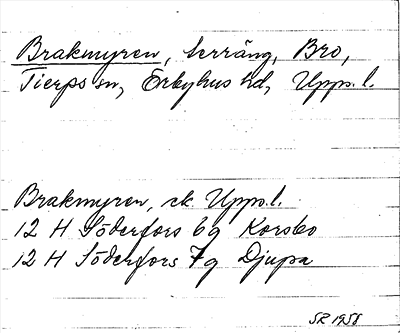 Brakmyren, terräng, Bro,
Tierps sn, Örbyhus hd, Upps.l.
Brakmyren, ek Upps.l.
12 H Söderfors 6g Korsbo
12 H Söderfors 7g Djupa
SR 1958